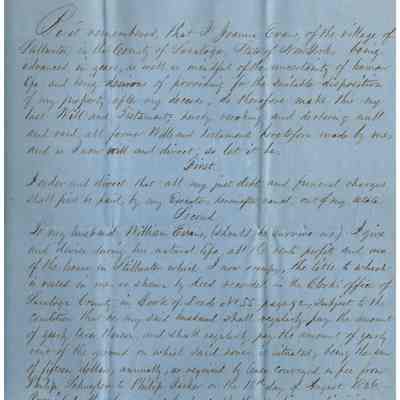 Be it remembered, that I Joanna Evans, of the village of
Stillwater in the County of Saratoga, State of New York, being
advanced in years, as well as mindful of the uncertainty of human
life, and being desirous of providing for the suitable disposition
of my property after my decease, do therefore make this my
last Will and Testament, hereby revoking and declaring null
and void all former Will and testament heretofore made by me,
and as I now will and direct, so let it be.
First.
I order and direct that all my just debts and funeral charges
shall first be paid by my Executor hereinafter named, out of my estate.
Second
To my husband William Evans, (should he survive me) I give
and devise during his natural life, all the rents profits and use
of the house in Stillwater which I now occupy, the title to which
is vested in me as shown by deed recorded in the Clerks office of
Saratoga County in Book of Deeds No 55, page 92, subject to the
condition that he my said husband shall regularly pay the amount
of yearly taxes thereon, and shall regularly pay the amount of yearly
rent of the ground on which said house is situated, being the sum
of fifteen dollars, annually, as required by lease conveyed in fee from
Philip Schuyler to Philip Parker on the 18th day of August 1826